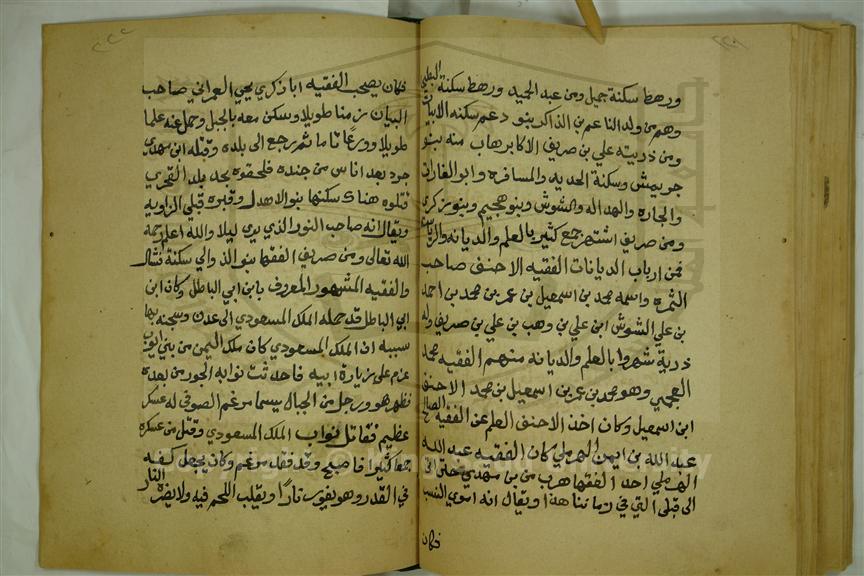 ورهط سكنة جميل ومن عبد الحميد ورهط سكنة
وهم من ولد الناعم بن الذاكر بنو دعم سكنه الابيات
ومن ذريته علي بن صريف الاكابر هاب منه بنو
جريمش وسكنة الحديه والمسافره وابو الغارات
والجاره والهداله والشوش وبنو هجيم وبنو زكري
ومن صريف اشتهر جمع كثير بالعلم والديانه
فمن ارباب الديانات الفقيه الاحنف صاحب
الثمره واسمه محمد بن اسمعيل بن عمر بن محمد بن احمد
بن علي الشوش ابن علي بن وهب بن علي بن صريف وله
ذرية شهروا بالعلم والديانه منهم الفقيه محمد
العجمي وهو محمد بن عمر بن اسمعيل بن محمد الاحنف
ابن اسمعيل وكان اخذ الاحنف العلم عن الفقيه الصالح
عبد الله بن ايمن الهرملي كان الفقيه عبد الله
الهرملي احد الفقها هرب من بن مهدي حتى اتى
الى قبلي التي في زماننا هذا ويقال انه اموي النسب
فكان
فكان يصحب الفقيه ابا زكري يحي العمراني صاحب
البيان زمنا طويلا وسكن معه بالجبل وحمل عنه علما
طويلا وورعا تاما ثم رجع الى بلده وقتله ابن مهدي
جرد بعد اناس من جنده فلحقوه بحد بلد القحري
قتلوه هناك سكنها بنو الاهدل وقبره قبلي الزاويه
ويقال انه صاحب النور الذي يرى ليلا والله اعلم رحمه
الله تعالى ومن صريف الفقها بنو الدوالي سكنة
والفقيه المشهور المعروف بابن ابي الباطل وكان ابن
ابي الباطل قد حمله الملك المسعودي الى عدن وسجنه بها
سببه ان الملك المسعودي كان ملك اليمن من بني ايوب
عزم على زيارة ابيه فاحدثت نوابه الجور من بعده
فظهر هو ورجل من الجبال يسما مرغم الصوفي له عسكر
عظيم فقاتل نواب الملك المسعودي وقتل من عسكره
جمعا كثيرا فاصبح وقد فقد مرغم وكان يجعل كفه
في القدر وهو يفور نارا ويقلب اللحم فيه ولا يضره النار